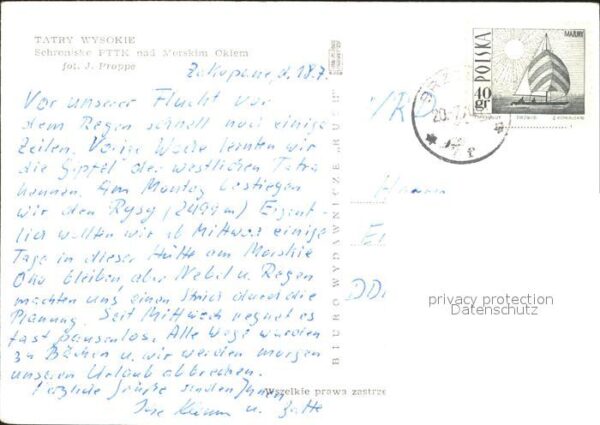 TATRY WYSOKIE
Schronisko PTTK nad Morskim Okiem
fot. J. Proppe
Zakopane, d. 18.7.
Vor unserer Flucht vor
dem Regen schnell noch einige
Zeilen. Vorige Woche lernten wir
die Gipfel der westlichen Tatra
kennen. Am Montag bestiegen
wir den Rysy (2499m) Eigent-
lich wollten wir ab Mittwoch einige
Tage in dieser Hütte am Morskie
Oko bleiben aber Nebel u. Regen
machten uns einen Strich durch die
Planung. Seit Mittwoch regnet es
fast pausenlos. Alle Wege wurden
zu Bächen u. wir werden morgen
unseren Urlaub abbrechen.
Herzliche Grüße senden Ihnen
u.
BIURO WYDAWNICZE „RUCH"
Wszelkie prawa zastrze
POLSKA
MAZURY
40 gr
20.
DD
privacy protection
Datenschutz